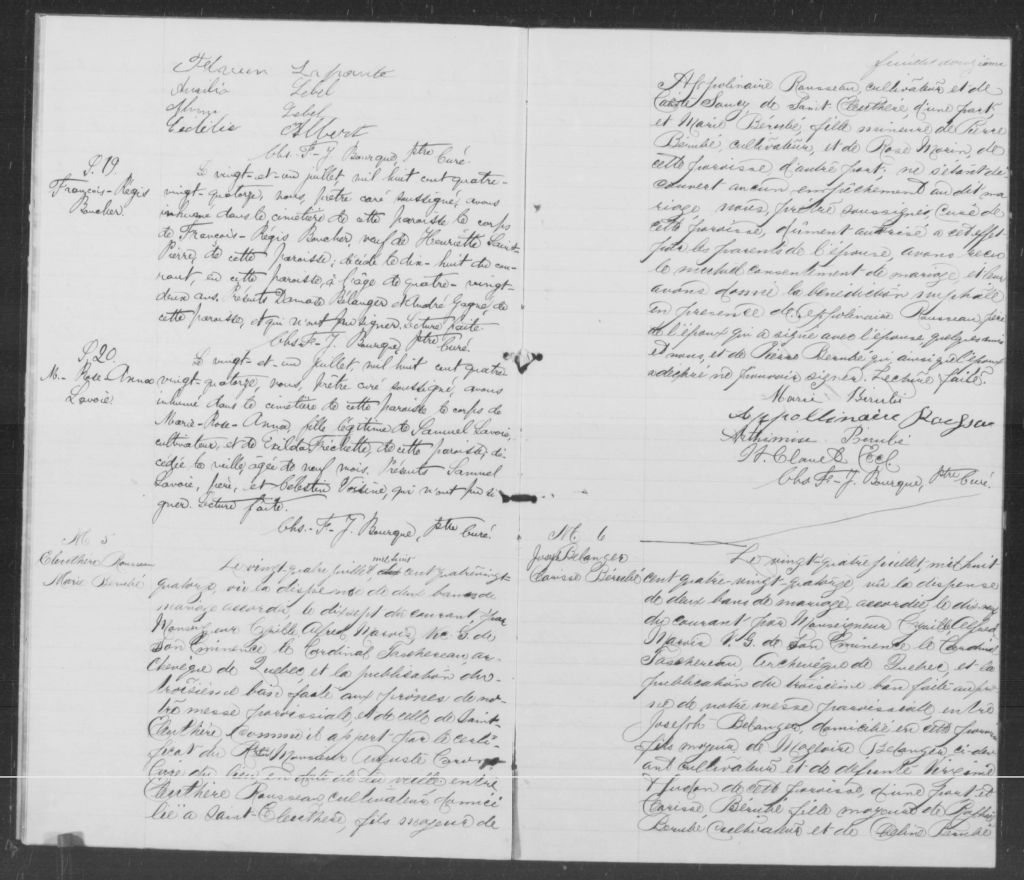 Lapointe
Aurélie Lebel
Lebel
Albert
Chs.-F-J. Bourque, ptre Curé.
S. 19.
François-Régis
Boucher.
Le vingt-et-un juillet mil huit cent quatre-
vingt-quatorze, nous, prêtre curé soussigné, avons
inhumé dans le cimetière de cette paroisse le corps
de François-Régis Boucher veuf de Henriette Saint-
Pierre, de cette paroisse; décédé le dix-huit du cou-
rant, en cette paroisse, à l'âge de quatre-vingt-
deux ans. Présents Bélanger et André Gagné, de
cette paroisse, et qui n'ont pu signer. Lecture faite.
Chs.-F-J. Bourque, ptre Curé.
S. 20
M.-Rose-Anna
Lavoie.
Le vingt-et-un juillet, mil huit cent quatre
vingt-quatorze, nous, prêtre curé soussigné, avons
inhumé dans le cimetière de cette paroisse le corps de
Marie-Rose-Anna, fille légitime de Samuel Lavoie,
cultivateur, et de Exilda Fréchette, de cette paroisse, dé
cédée la veille, âgée de neuf mois. Présents Samuel
Lavoie, père, et Célestin Voisine, qui n'ont pu si
gner. Lecture faite.
Chs.-F-J. Bourque, ptre Curé.
M. 5
Eleuthère Rousseau
Marie Bérubé
Le vingt-quatre juillet, mil huit cent quatre vingt
quatorze, vu la dispense de deux bans de
mariage accordée le dix sept du courant, par
Monseigneur Cyrille Alfred Marois, V. G. de
Son Eminence le Cardinal Taschereau, ar-
chevêque de Québec, et la publication du
troisième ban faite aux prônes de no-
tre messe paroissiale et de celle de Saint
Eleuthère comme il appert par le certi-
ficat du Monsieur
Curé du lieu en date du entre
Eleuthère Rousseau, cultivateur domici
lié à Saint-Eleuthère, fils majeur de
feuillet douzième
Appolinaire Rousseau, cultivateur et de
Soucy, de Saint Eleuthère, d'une part;
et Marie Bérubé, fille mineure de Pierre
Bérubé, cultivateur, et de Rose Morin, de
cette paroisse d'autre part; ne s'étant dé
couvert aucun empêchement au dit ma
riage nous, prêtre soussigné curé de
cette paroisse, dûment autorisé à cet effet
par les parents de l'épouse, avons reçu
le mutuel consentement de mariage, et leur
avons donné la bénédiction nuptiale
en présence de Appolinaire Rousseau, père
de l'époux qui a signé avec l'épouse quelques
et nous, et de Pierre Bérubé qui, ainsi que l'époux
a déclaré ne pouvoir signer. Lecture faite.
Marie Bérubé
Appollinaire
Bérubé
Eccl.
Chs F-J. Bourque, ptre Curé.
M. 6
Joseph Belanger
Carisse Bérubé
Le vingt-quatre juillet mil huit
cent quatre-vingt-quatorze vu la dispense
de deux bans de mariage, accordée le
du courant par Monseigneur Cyrille Alfred
Marois V. G. de Son Eminence le Cardinal
Taschereau Archevêque de Québec, et la
publication du troisième ban faite au prô
ne de notre messe paroissiale entre
Joseph Belanger, domicilié en cette paroisse
fils majeur de Magloire Belanger ci-dev
ant cultivateur et de défunte Virginie
de cette paroisse, d'une part et
Carisse Bérubé fille majeure de
Bérubé cultivateur et de Bérubé